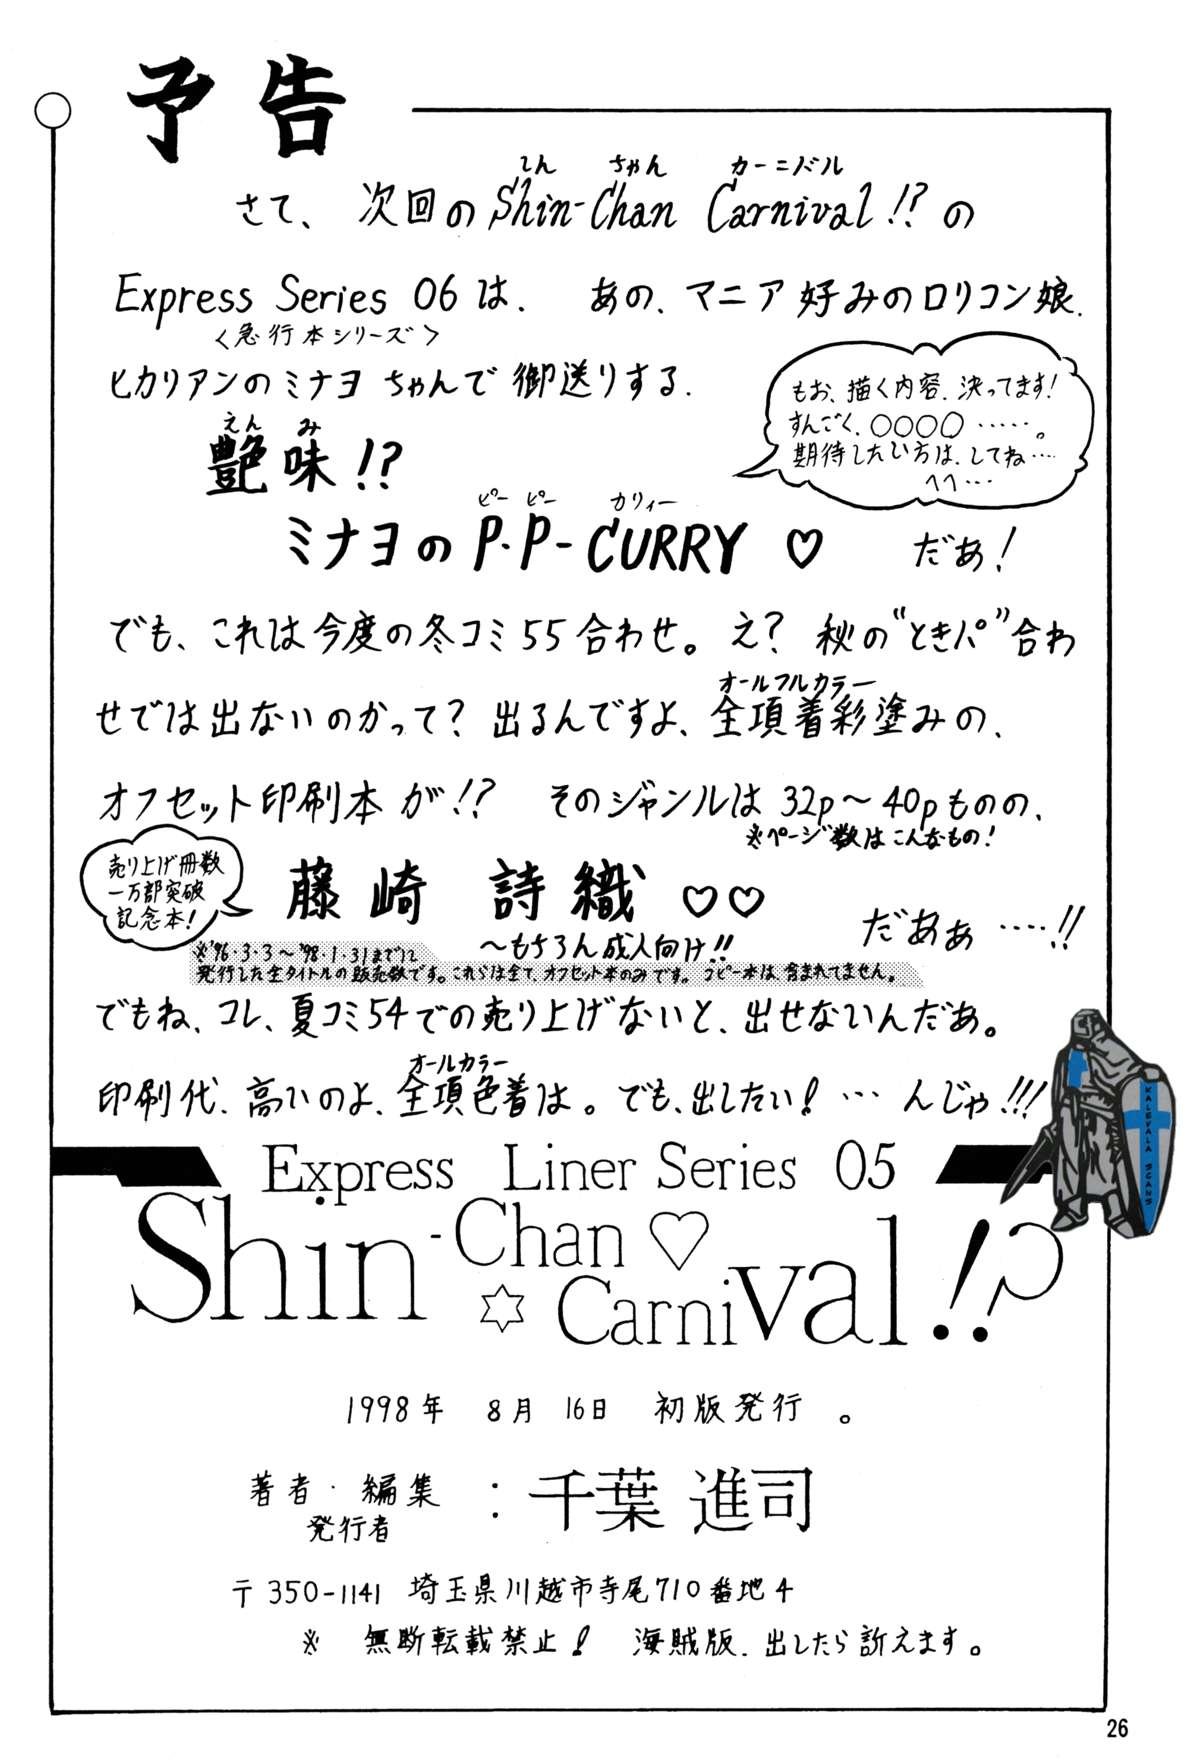 予告
しん ちゃん カーニバル
さて、次回のShin-Chan Carnival!?の
Express Series 06は、あの、マニア好みのロリコン娘、
<急行本シリーズ>
ヒカリアンのミナヨちゃんで御送りする、
もお、描く内容、決ってます!
すんごく、○○○○……。
期待したい方は、してね……
へへ…
えん み
艶味!?
ピー ピー カリィー
ミナヨのP.P-CURRY♡ だあ!
でも、これは今度の冬コミ55合わせ。え?秋の"ときパ"合わ
せでは出ないのかって?出るんですよ、全項着彩塗みの、
オールフルカラー
オフセット印刷本が!? そのジャンルは32p〜40pものの、
※ページ数はこんなもの!
売り上げ冊数
一万部突破
記念本!
藤崎 詩織♡♡ だあぁ……!!
〜もちろん成人向け!!
※'96・3・3〜'98・1・31までに
発行した全タイトルの販売数です。これらは全て、オフセット本のみです。コピー本は、含まれてません。
でもね、コレ、夏コミ54での売り上げないと、出せないんだあ。
オールカラー
印刷代、高いのよ、全項色着は。でも、出したい!…んじゃ!!!
KALEVALA SCANS
Express Liner Series 05
Shin-Chan♡
☆Carnival!?
1998年 8月 16日 初版発行。
著者・編集
発行者
: 千葉 進司
〒350-1141 埼玉県川越市寺尾710番地4
※ 無断転載禁止! 海賊版、出したら訴えます。
26